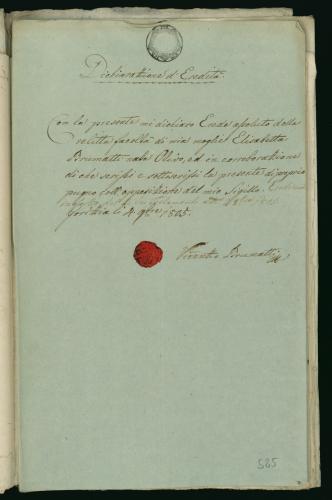 Dichiarazione d'Eredità.
Con la presente mi dichiaro Erede assoluto della
relitta facoltà di mia moglie Elisabetta
Brumatti nata Olivo, ed in corroborazione
di che scrissi e sottoscrissi la presente di proprio
pugno coll'apposizione del mio Sigillo.
Gorizia li 4. 9bre 1815.
Brumatti
585